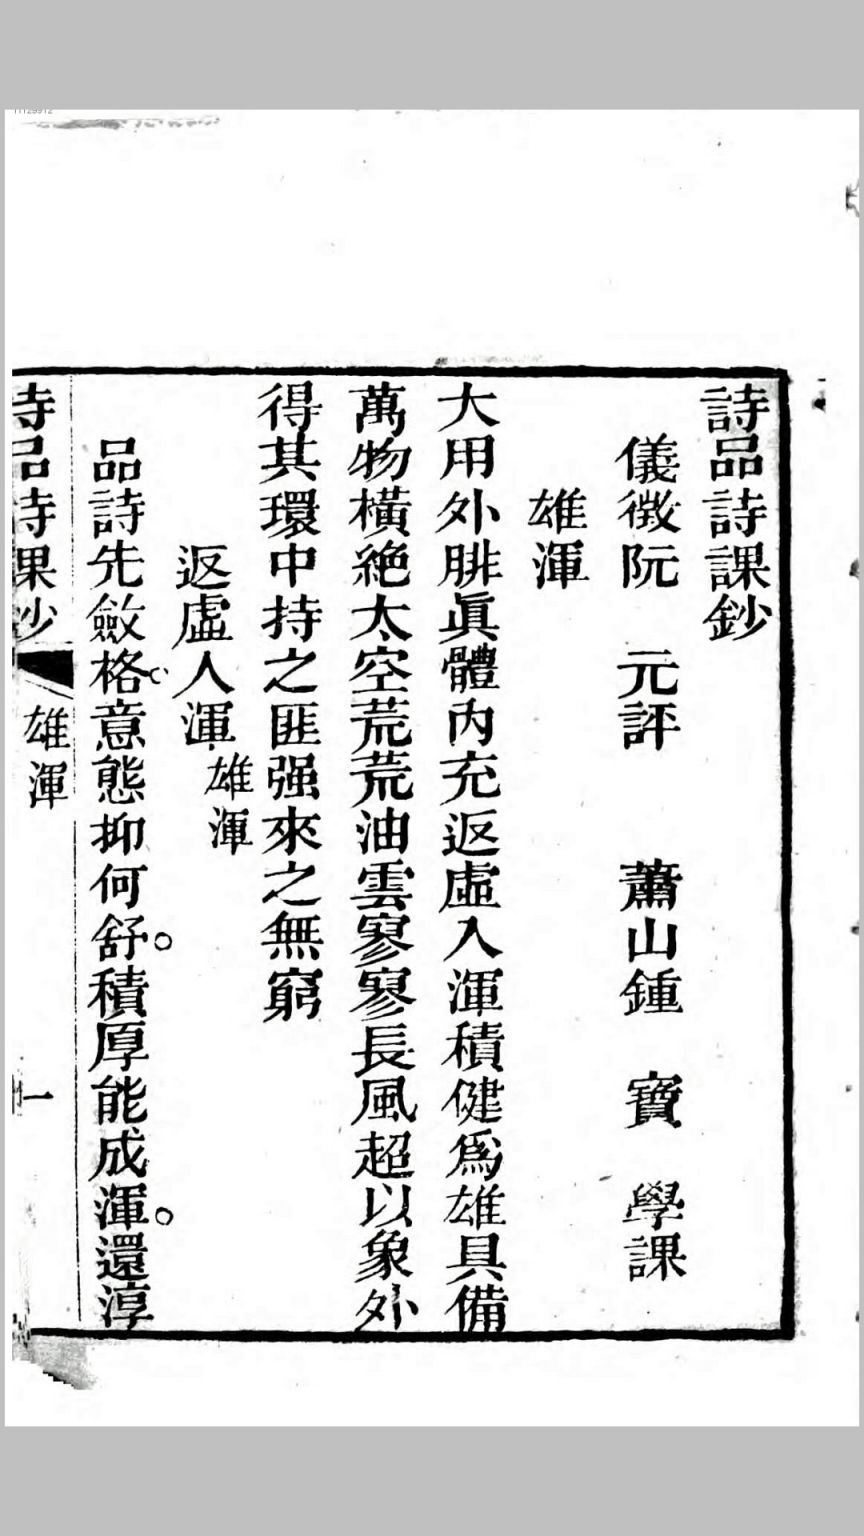 詩品詩課鈔
儀徵阮　元評　蕭山鍾　寶　學課
雄渾
大用外腓眞體內充返虛入渾積健爲雄具備
萬物橫絶太空荒荒油雲寥寥長風超以象外
得其環中持之匪强來之無窮
返虛入渾雄渾
品詩先斂格意態抑何舒積厚能成渾還淳
詩品詩課鈔　雄渾　一